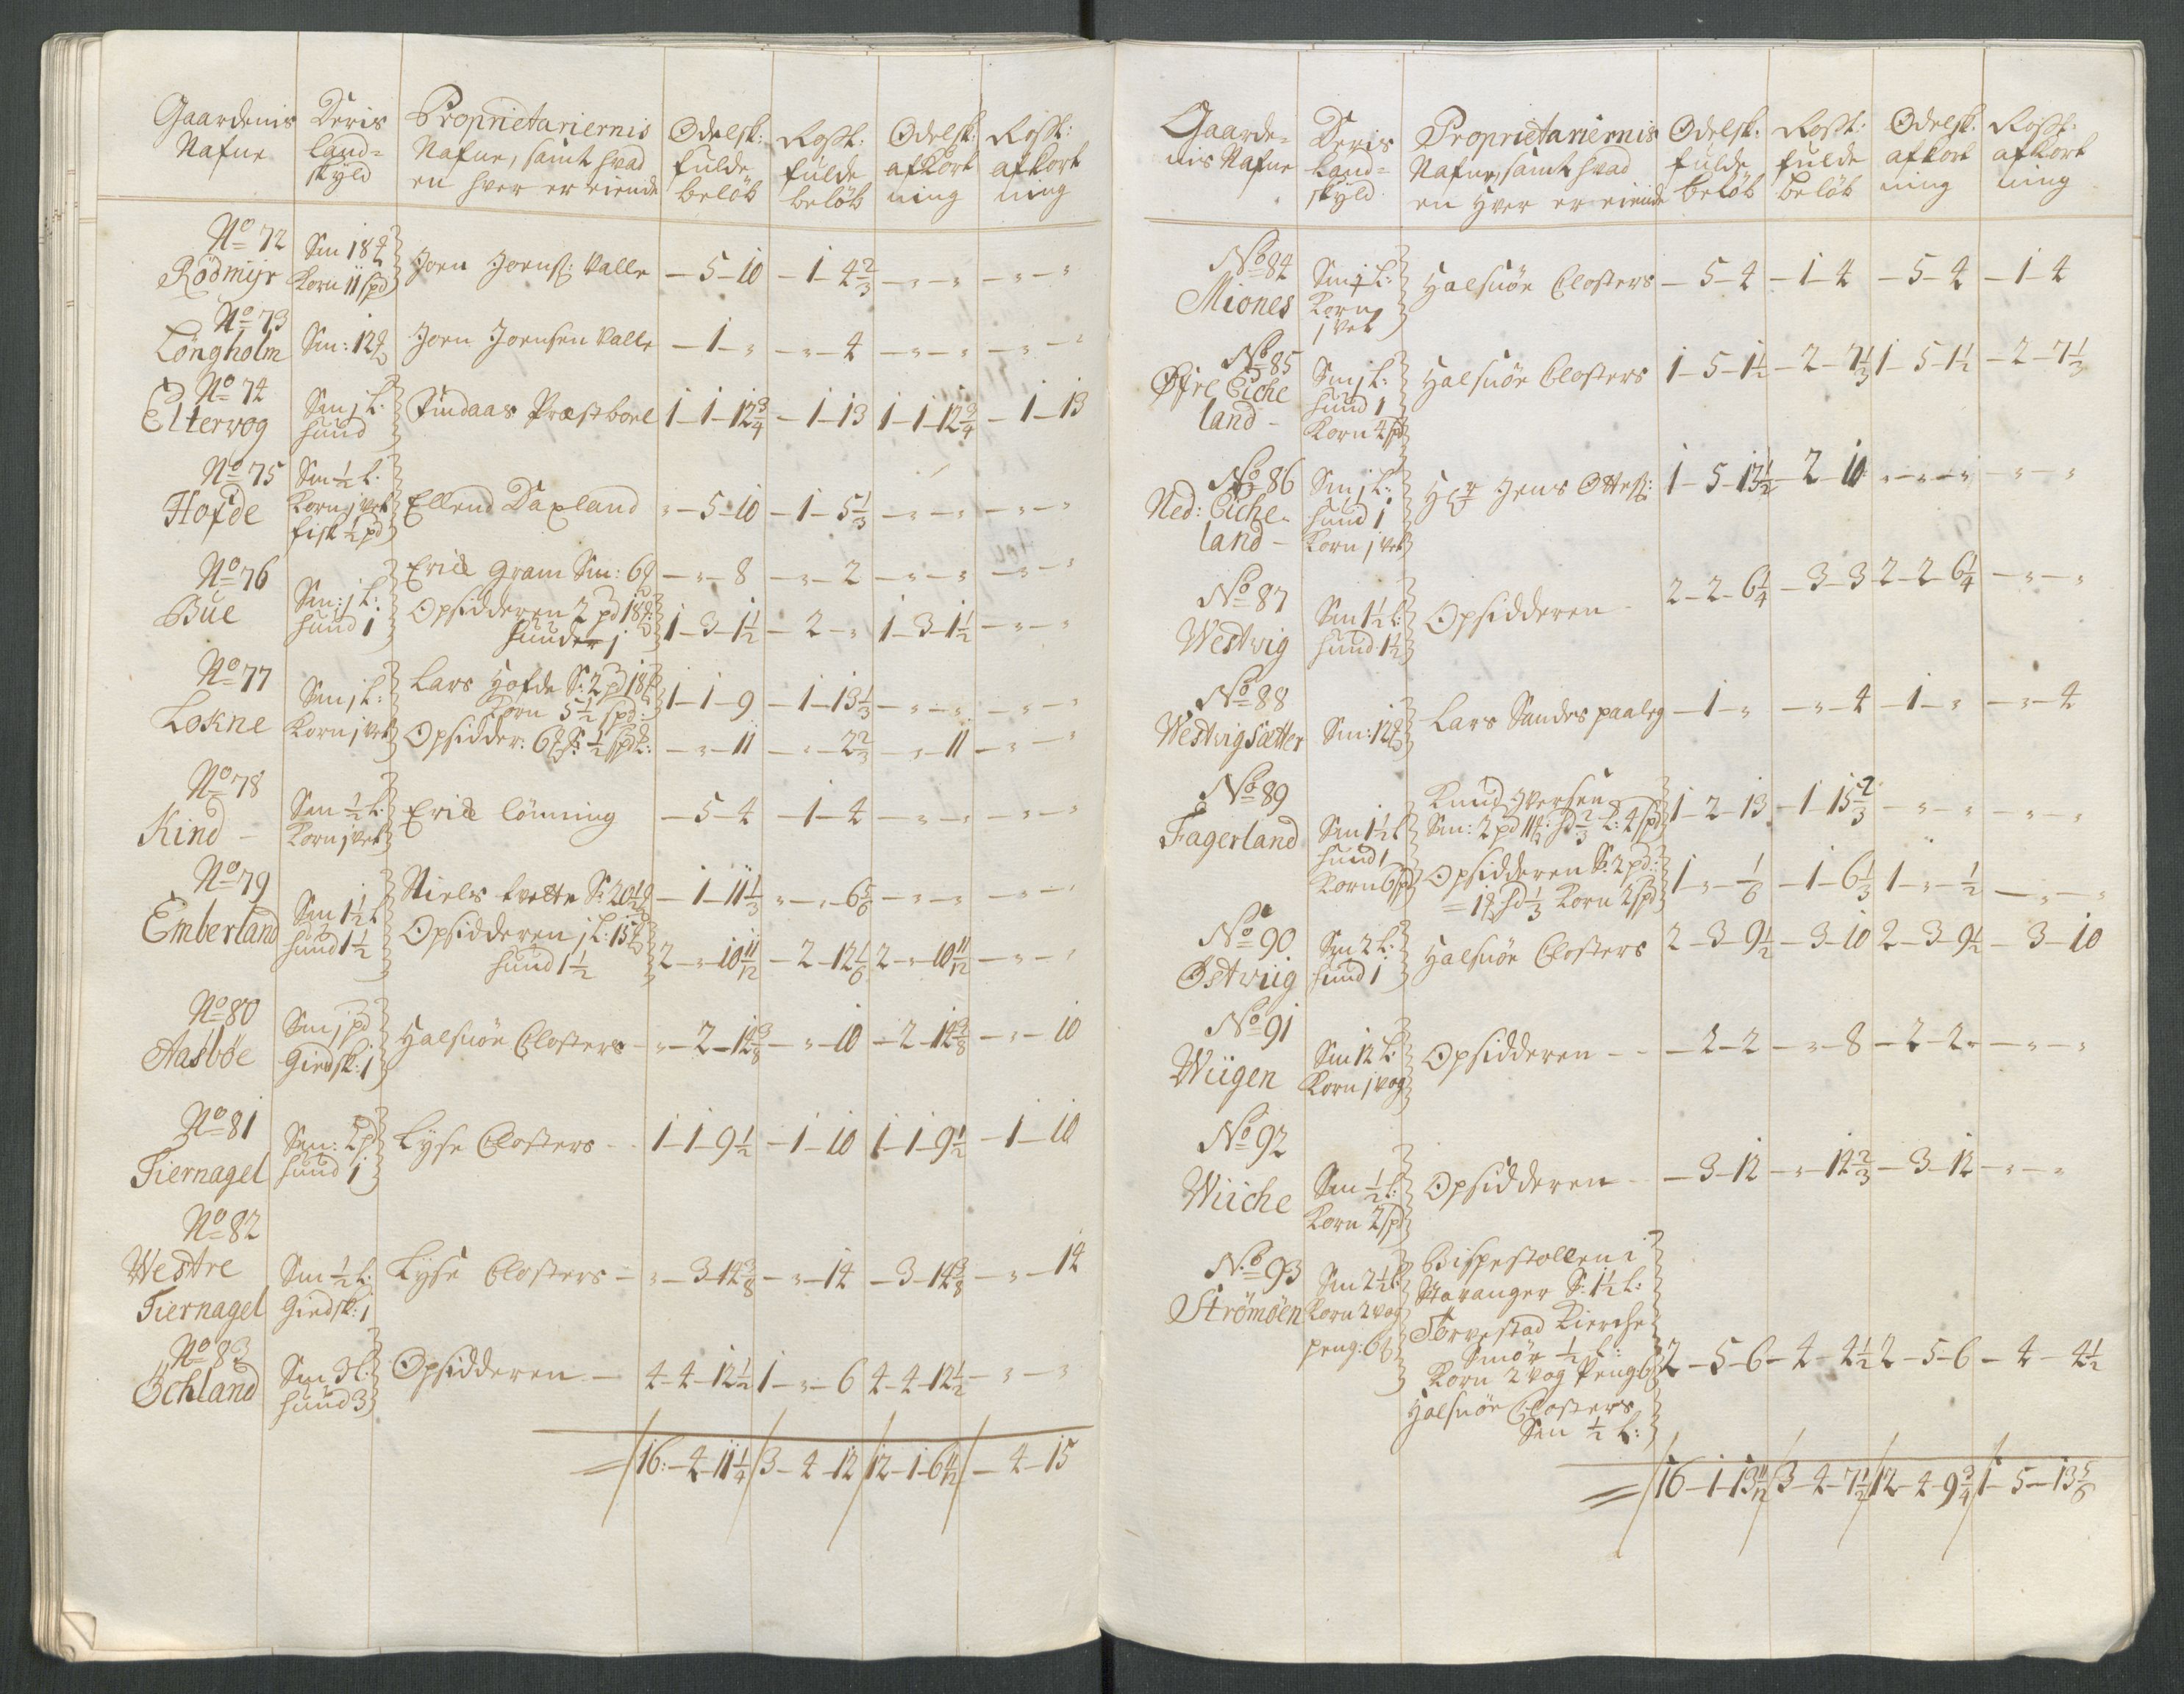 Gaardenis Nafne | Deris Land=skyld | Proprietariernis Nafne, samt hvad en hver er eiende | Odelsk: fulde beløb | Rostt: fulde beløb | Odelsk: afkortning | Rostt: afkortning
No 72
Rödmijr | Sm 18 ... Korn 11 spd | Joen Joens: Valle | — 5 — 10 | — 1 — 4 2/3 | — " — " | — " — "
No 73
Löngholm | Sm: 12 | Joen Joensen Valle | — 1 — " | — " — 4 | — " — " | — " — "
No 74
Eltervog | Sm j L: hund | Findaas Præstboel | 1 — 1 — 12 3/4 | — 1 — 13 | 1 — 1 — 12 3/4 | — 1 — 13
No 75
Hofde | Sm 1/2 L. Korn j vet fisk 1/2 pd | Ellend Daxland | " — 5 — 10 | — 1 — 5 1/3 | — " — " | — " — "
No 76
Bue | Sm: j L: hund 1 | Erick Gram Sm: 6 | — " — 8 | — " — 2 | — " — " | — " — "
Opsidderen 2 pd 18 hunder j | 1 — 3 — 1 1/2 | — 2 — " | 1 — 3 — 1 1/2 | — " — "
No 77
Lokne | Sm j L: Korn j vet | Lars Hofde S: 2 pd 18 Korn 5 1/2 spd: | 1 — 1 — 9 | — 1 — 13 1/3 | — " — " | — " — "
Opsidder: 6 ... 1/2 spd: | — " — 11 | — " — 2 2/3 | — " — 11 | — " — "
No 78
Kind — | Sm 1/2 L. Korn j vet | Erick Lönning | — 5 — 4 | — 1 — 4 | — " — " | — " — "
No 79
Emberland | Sm 1 1/2 L hund 1 1/2 | Niels tvette S: 20 1/2 | — 1 — 11 1/3 | " — " — 6 5/6 | — " — " | — " — "
Opsidderen j L: 15 hund 1 1/2 | 2 — " — 10 11/12 | — 2 — 12 1/6 | 2 — " — 10 11/12 | — " — "
No 80
Aasböe | Sm j pd Giedsk: 1 | Halsnöe Closters | " — 2 — 14 3/8 | — " — 10 | — 2 — 14 3/8 | — " — 10
No 81
Tiernagel | Sm: 2 p hund 1 | Lyse Closters — | 1 — 1 — 9 1/2 | — 1 — 10 | 1 — 1 — 9 1/2 | — 1 — 10
No 82
Westre Tiernagel | Sm 1/2 L: Giedsk: 1 | Lyse Closters — | " — 3 — 14 3/8 | — " — 14 | — 3 — 14 3/8 | — " — 14
No 83
Öchland | Sm 3 L: hund 3 | Opsidderen — | 4 — 4 — 12 1/2 | 1 — " — 6 | 4 — 4 — 12 1/2 | — " — "
= 16: — 4 — 11 1/4 | 3 — 4 — 12 | 12 — 1 — 6 11/12 | — 4 — 15
Gaarde=nis Nafne | Deris Land=skyld | Proprietariernis Nafne, samt hvad en Hver er eiende | Odelsk: fulde beløb | Rostt: fulde beløb | Odelsk. afkortning | Rostt: afkortning
No 84
Miones | Sm j L: Korn j vet | Halsnöe Closters | — 5 — 4 | — 1 — 4 | — 5 — 4 | — 1 — 4
No 85
Øfre Eiche land — | Sm j L: hund 1 Korn 4 spd | Halsnöe Closters | 1 — 5 — 1 1/2 | — 2 — 7 1/3 | 1 — 5 — 1 1/2 | — 2 — 7 1/3
No 86
Ned: Eiche= land — | Sm j L: hund 1 Korn j vet | Hr Jens Ottes: | 1 — 5 — 13 1/2 | — 2 — 10 | " — " — " | — " — "
No 87
Westvig | Sm 1 1/2 L: hund 1 1/2 | Opsidderen — | 2 — 2 — 6 1/4 | — 3 — 3 | 2 — 2 — 6 1/4 | — " — "
No 88
Westvigsætter | Sm: 12 | Lars Sandes paaleg | — 1 — " | — " — 4 | — 1 — " | — " — 4
No 89
Fagerland | Sm 1 1/2 L hund 1 Korn 6 spd | Knud Iversen Sm: 2 pd 11 : hd 2/3 L: 4 spd | 1 — 2 — 13 | — 1 — 15 2/3 | — " — " | — " — "
Opsidderen S: 2 pd: = 1 hd 1/3 Korn 2 spd | 1 — " — 1/6 | — 1 — 6 1/3 | 1 — " — 1/2 | — " — "
No 90
Östwiig | Sm 2 L: hund 1 | Halsnöe Closters | 2 — 3 — 9 1/2 | — 3 — 10 | 2 — 3 — 9 1/2 | — 3 — 10
No 91
Wiigen | Sm 12 L: Korn j vog | Opsidderen — | — 2 — 2 | — " — 8 | — 2 — 2 " | — " — "
No 92
Wiiche | Sm 1/2 L: Korn 2 spd | Opsidderen — | — 3 — 12 | — " — 14 2/3 | — 3 — 12 | — " — "
No 93
Strömöen | Sm 2 1/2 L Korn 2 vog peng: 6 | Bispestollen i Stavanger S: 1 1/2 L: Torvestad Kierche Smör 1/2 L: Korn 2 vog Peng 6 Halsnöe Closters Sm 1/2 L: | 2 — 5 — 6 | — 4 — 4 1/2 | 2 — 5 — 6 | — 4 — 4 1/2
= 16 — 1 — 13 11/12 | 3 — 4 — 7 1/2 | 12 — 4 — 9 3/4 | 1 — 5 — 13 5/6